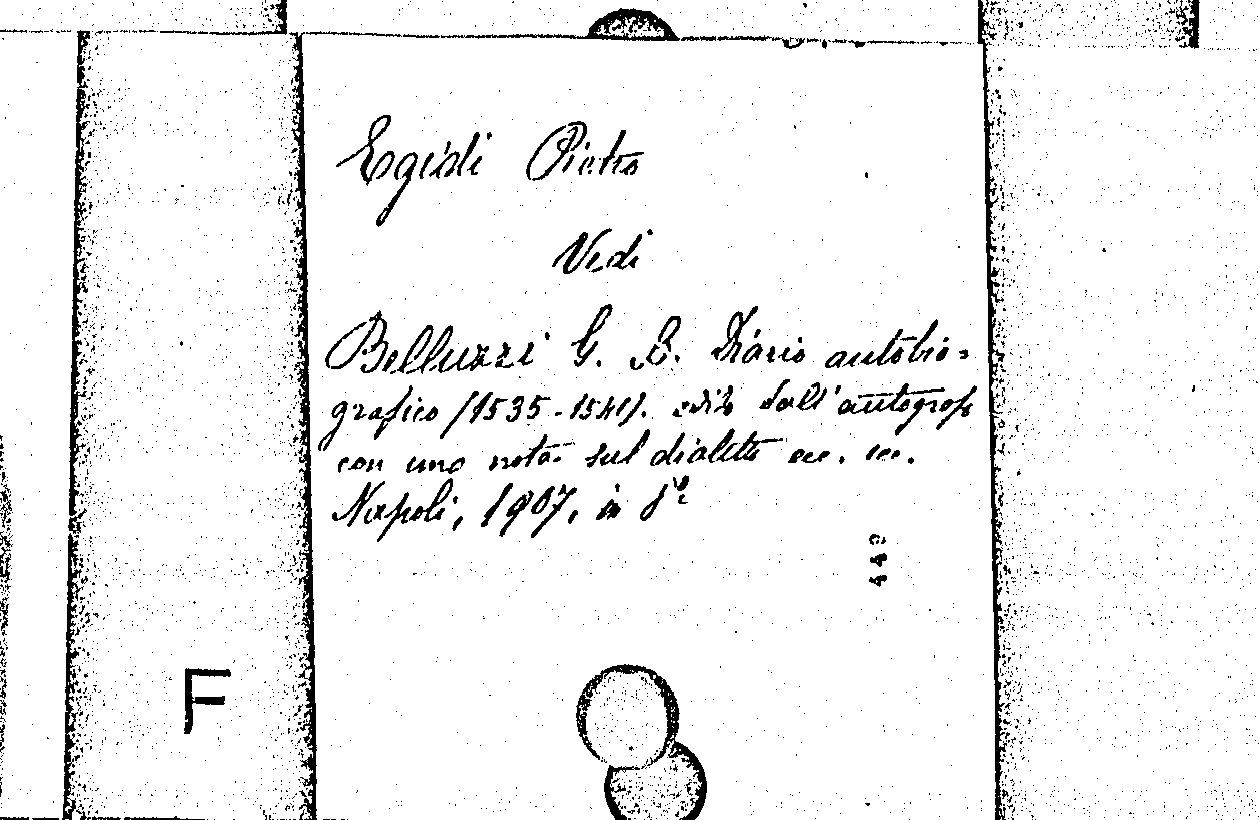 Egidi Pietro
Vedi
Belluzzi G. B. Diario autobio=
grafico (1535-1541). edito dall'autografo
con una nota sul dialetto ecc. ecc.
Napoli, 1907, in 8º
449
F